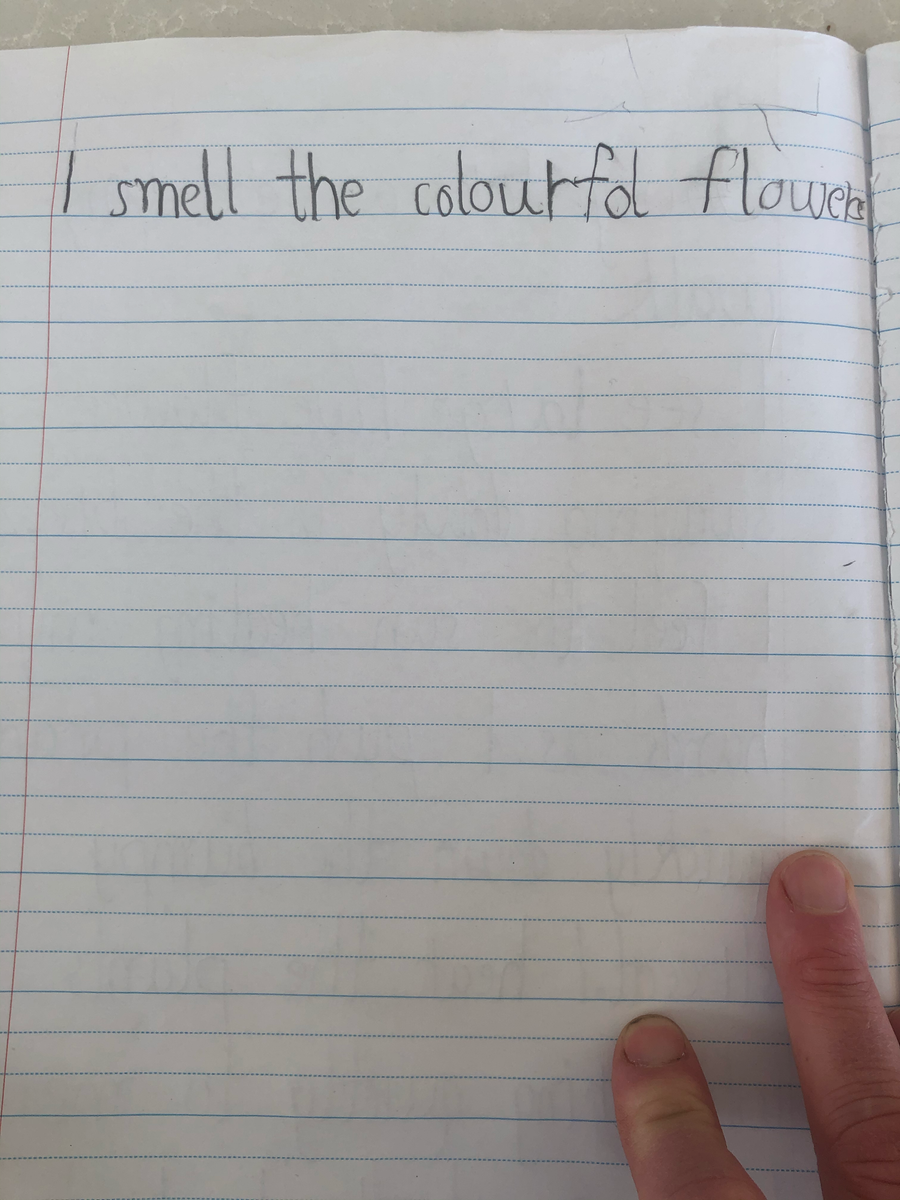 I smell the colourfol flowers